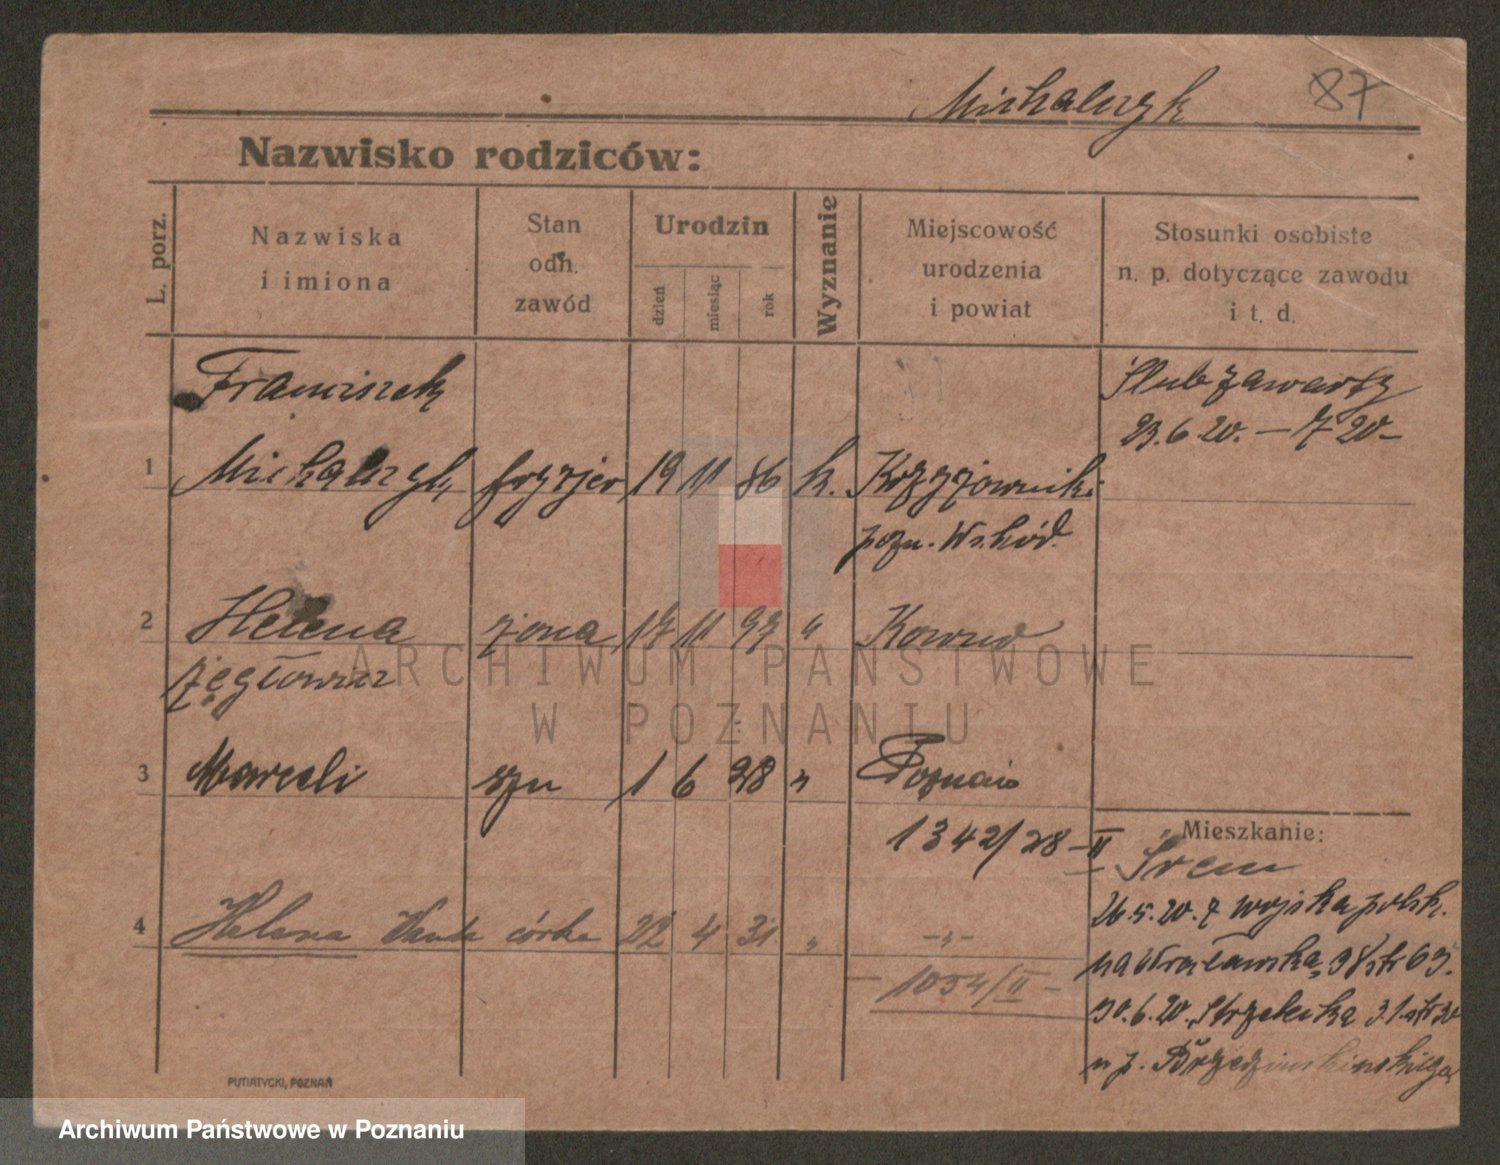 Michalczyk 87
Nazwisko rodziców:
L. porz.
Nazwiska
i imiona
Stan
odn.
zawód
Urodzin
dzień
miesiąc
rok
Wyznanie
Miejscowość
urodzenia
i powiat
Stosunki osobiste
n. p. dotyczące zawodu
i t. d.
Franciszek
Ślub zawarty
23.6.20. – 720 –
1 Michalczyk fryzjer 19 11 86 k. Krzyżowniki
pozn. Wschód.
2 Helena żona 17 11 97 " Kowno
ARCHIWUM PAŃSTWOWE
W POZNANIU
3 Marceli syn 1 6 28 " Poznań
1342/28 – II
Mieszkanie:
Śrem
26.5.20. z wojska polsk.
4 Helena Wanda córka 22 4 31 " – " –
na Wrocławska 38 str 63.
– 1054/II –
30.6.20. Strzelecka 31. str 30
u p.
PUTIATYCKI, POZNAŃ
Archiwum Państwowe w Poznaniu